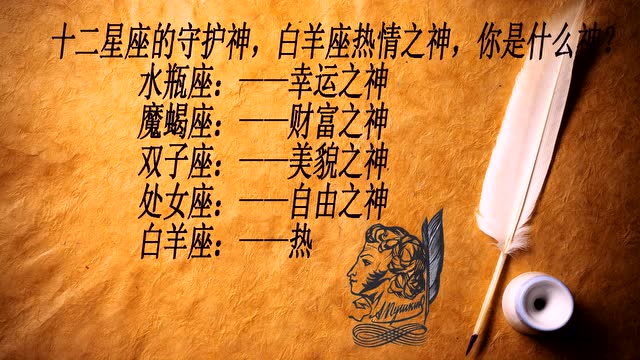 十二星座的守护神，白羊座热情之神，你是什么神？
水瓶座：——幸运之神
魔蝎座：——财富之神
双子座：——美貌之神
处女座：——自由之神
白羊座：——热
А Пушкин